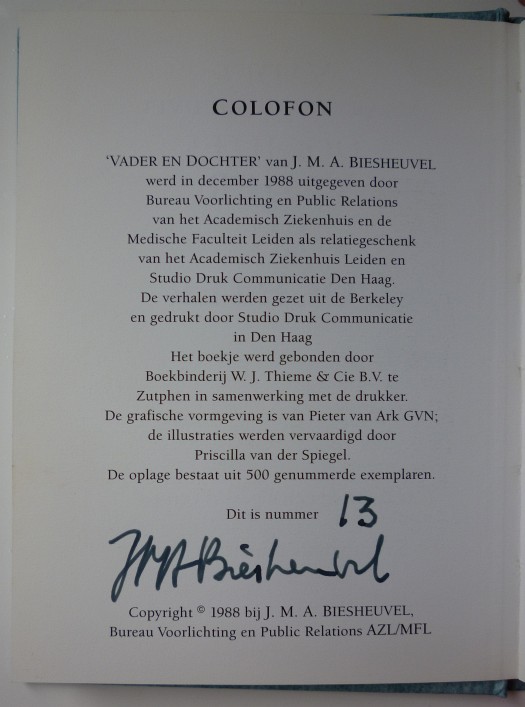 COLOFON
‘VADER EN DOCHTER’ van J. M. A. BIESHEUVEL
werd in december 1988 uitgegeven door
Bureau Voorlichting en Public Relations
van het Academisch Ziekenhuis en de
Medische Faculteit Leiden als relatiegeschenk
van het Academisch Ziekenhuis Leiden en
Studio Druk Communicatie Den Haag.
De verhalen werden gezet uit de Berkeley
en gedrukt door Studio Druk Communicatie
in Den Haag
Het boekje werd gebonden door
Boekbinderij W. J. Thieme & Cie B.V. te
Zutphen in samenwerking met de drukker.
De grafische vormgeving is van Pieter van Ark GVN;
de illustraties werden vervaardigd door
Priscilla van der Spiegel.
De oplage bestaat uit 500 genummerde exemplaren.
Dit is nummer 13
JMA Biesheuvel
Copyright © 1988 bij J. M. A. BIESHEUVEL,
Bureau Voorlichting en Public Relations AZL/MFL